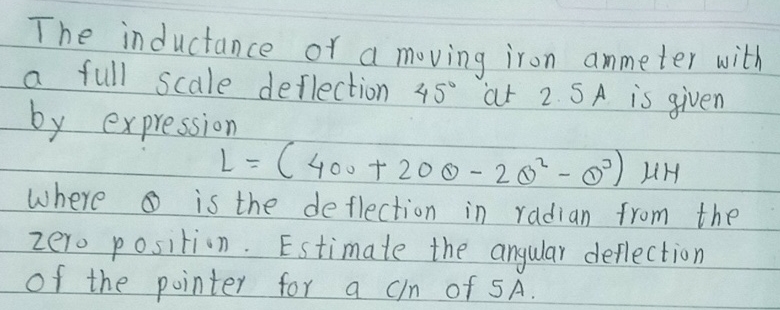 The inductance of a moving iron ammeter with
a full scale deflection 45° at 2.5A is given
by expression
L = ( 400 + 20θ - 2θ² - θ³) μH
where θ is the deflection in radian from the
zero position. Estimate the angular deflection
of the pointer for a c/n of 5A.